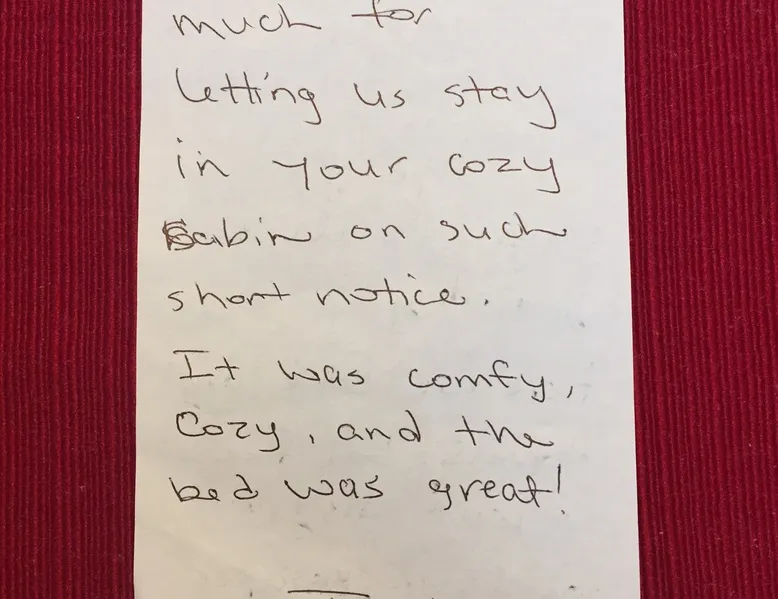 much for
letting us stay
in your cozy
cabin on such
short notice.
It was comfy,
Cozy, and the
bed was great!